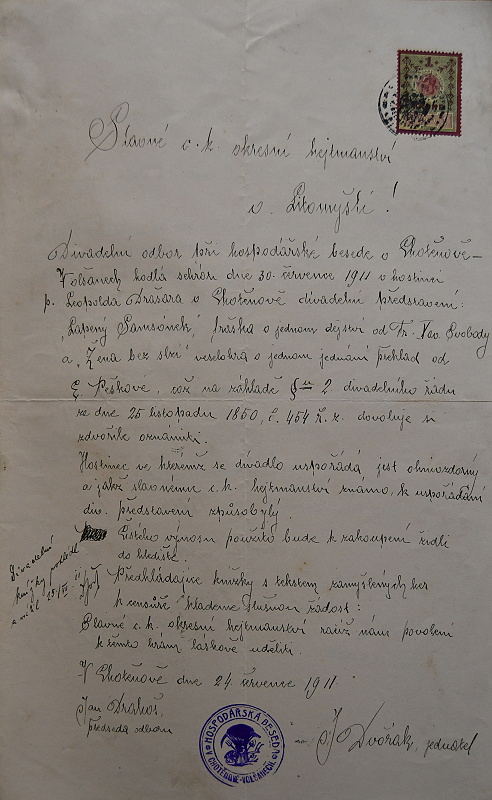 1
Slavné c. k. okresní hejtmanství
v Litomyšli!
Divadelní odbor při hospodářské besedě v Chotěnově-
Volšanech hodlá sehráti dne 30. července 1911 v hostinci
p. Leopolda Drašara v Chotěnově divadelní představení:
"Samsónek" fraška o jednom dějství od Fr. Xav. Svobody
a "Žena bez srdce" veselohra o jednom jednání překlad od
E. Peškové, což na základě § 2. divadelního řádu
ze dne 25 listopadu 1850, č. 454 ř. z. dovoluje si
zdvořile oznámiti.
Hostinec ve kterémž se divadlo uspořádá jest ohnivzdorný
a jakž slavnému c. k. hejtmanství známo, k uspořádání
div. představení způsobylý
Čistého výnosu použito bude k zakoupení židlí
do hlediště.
Předkládajíce knížky s tekstem zamýšlených her
k censuře klademe slušnou žádost:
Slavné c. k. okresní hejtmanství račiž nám povolení
k těmto hrám láskavě uděliti.
Divadelní
knížky
V Chotěnově dne 24. července 1911
Jan Drahoš,
předseda odboru
HOSPODÁŘSKÁ BESEDA
CHOTĚNOVĚ-VOLŠANECH
J Dvořák, jednatel